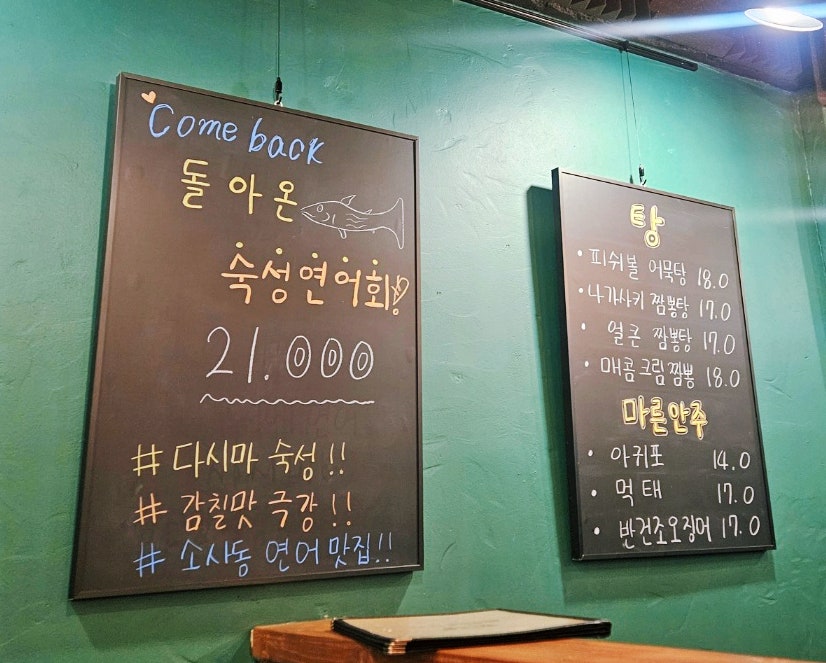 Come back
돌아온
숙성연어회!
21.000
# 다시마 숙성!!
# 감칠맛 극강!!
# 소사동 연어 맛집!!
탕
• 피쉬볼 어묵탕 18.0
• 나가사키 짬뽕탕 17.0
• 얼큰 짬뽕탕 17.0
• 매콤크림짬뽕 18.0
마른안주
• 아귀포 14.0
• 먹태 17.0
• 반건조오징어 17.0